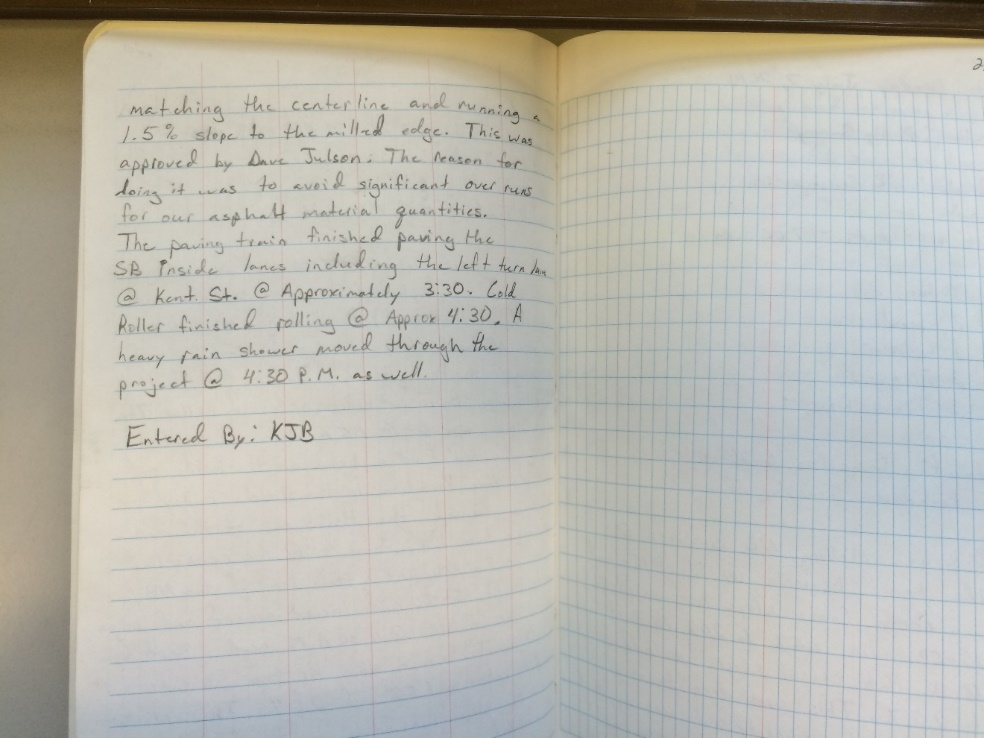 matching the centerline and running a
1.5% slope to the milled edge. This was
approved by Dave Julson. The reason for
doing it was to avoid significant over runs
for our asphalt material quantities.
The paving train finished paving the
SB inside lanes including the left turn lane
@ Kent. St. @ Approximately 3:30. Cold
Roller finished rolling @ Approx 4:30. A
heavy rain shower moved through the
project @ 4:30 P.M. as well.
Entered By: KJB